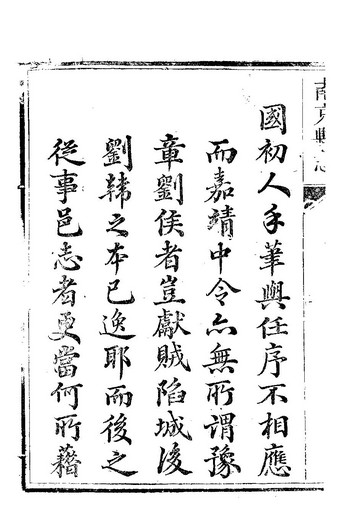 國初人手筆與任序不相應
而嘉靖中令亦無所謂豫
章劉侯者豈獻賊陷城後
劉韩之本已逸耶而後之
從事邑志者更當何所藉